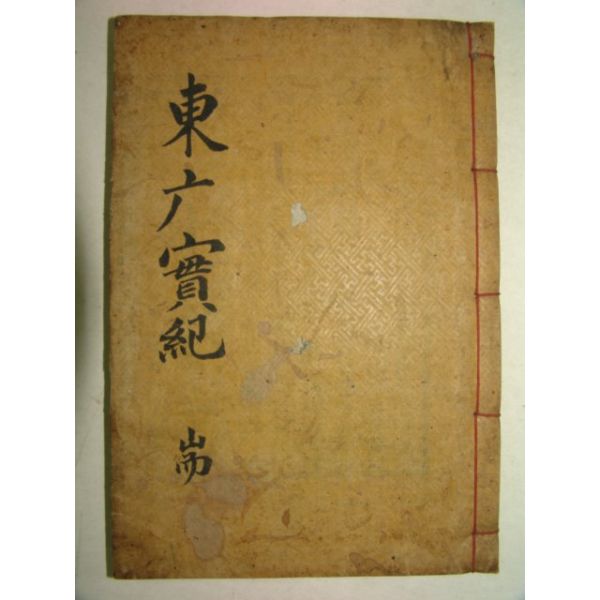 東广實紀 耑